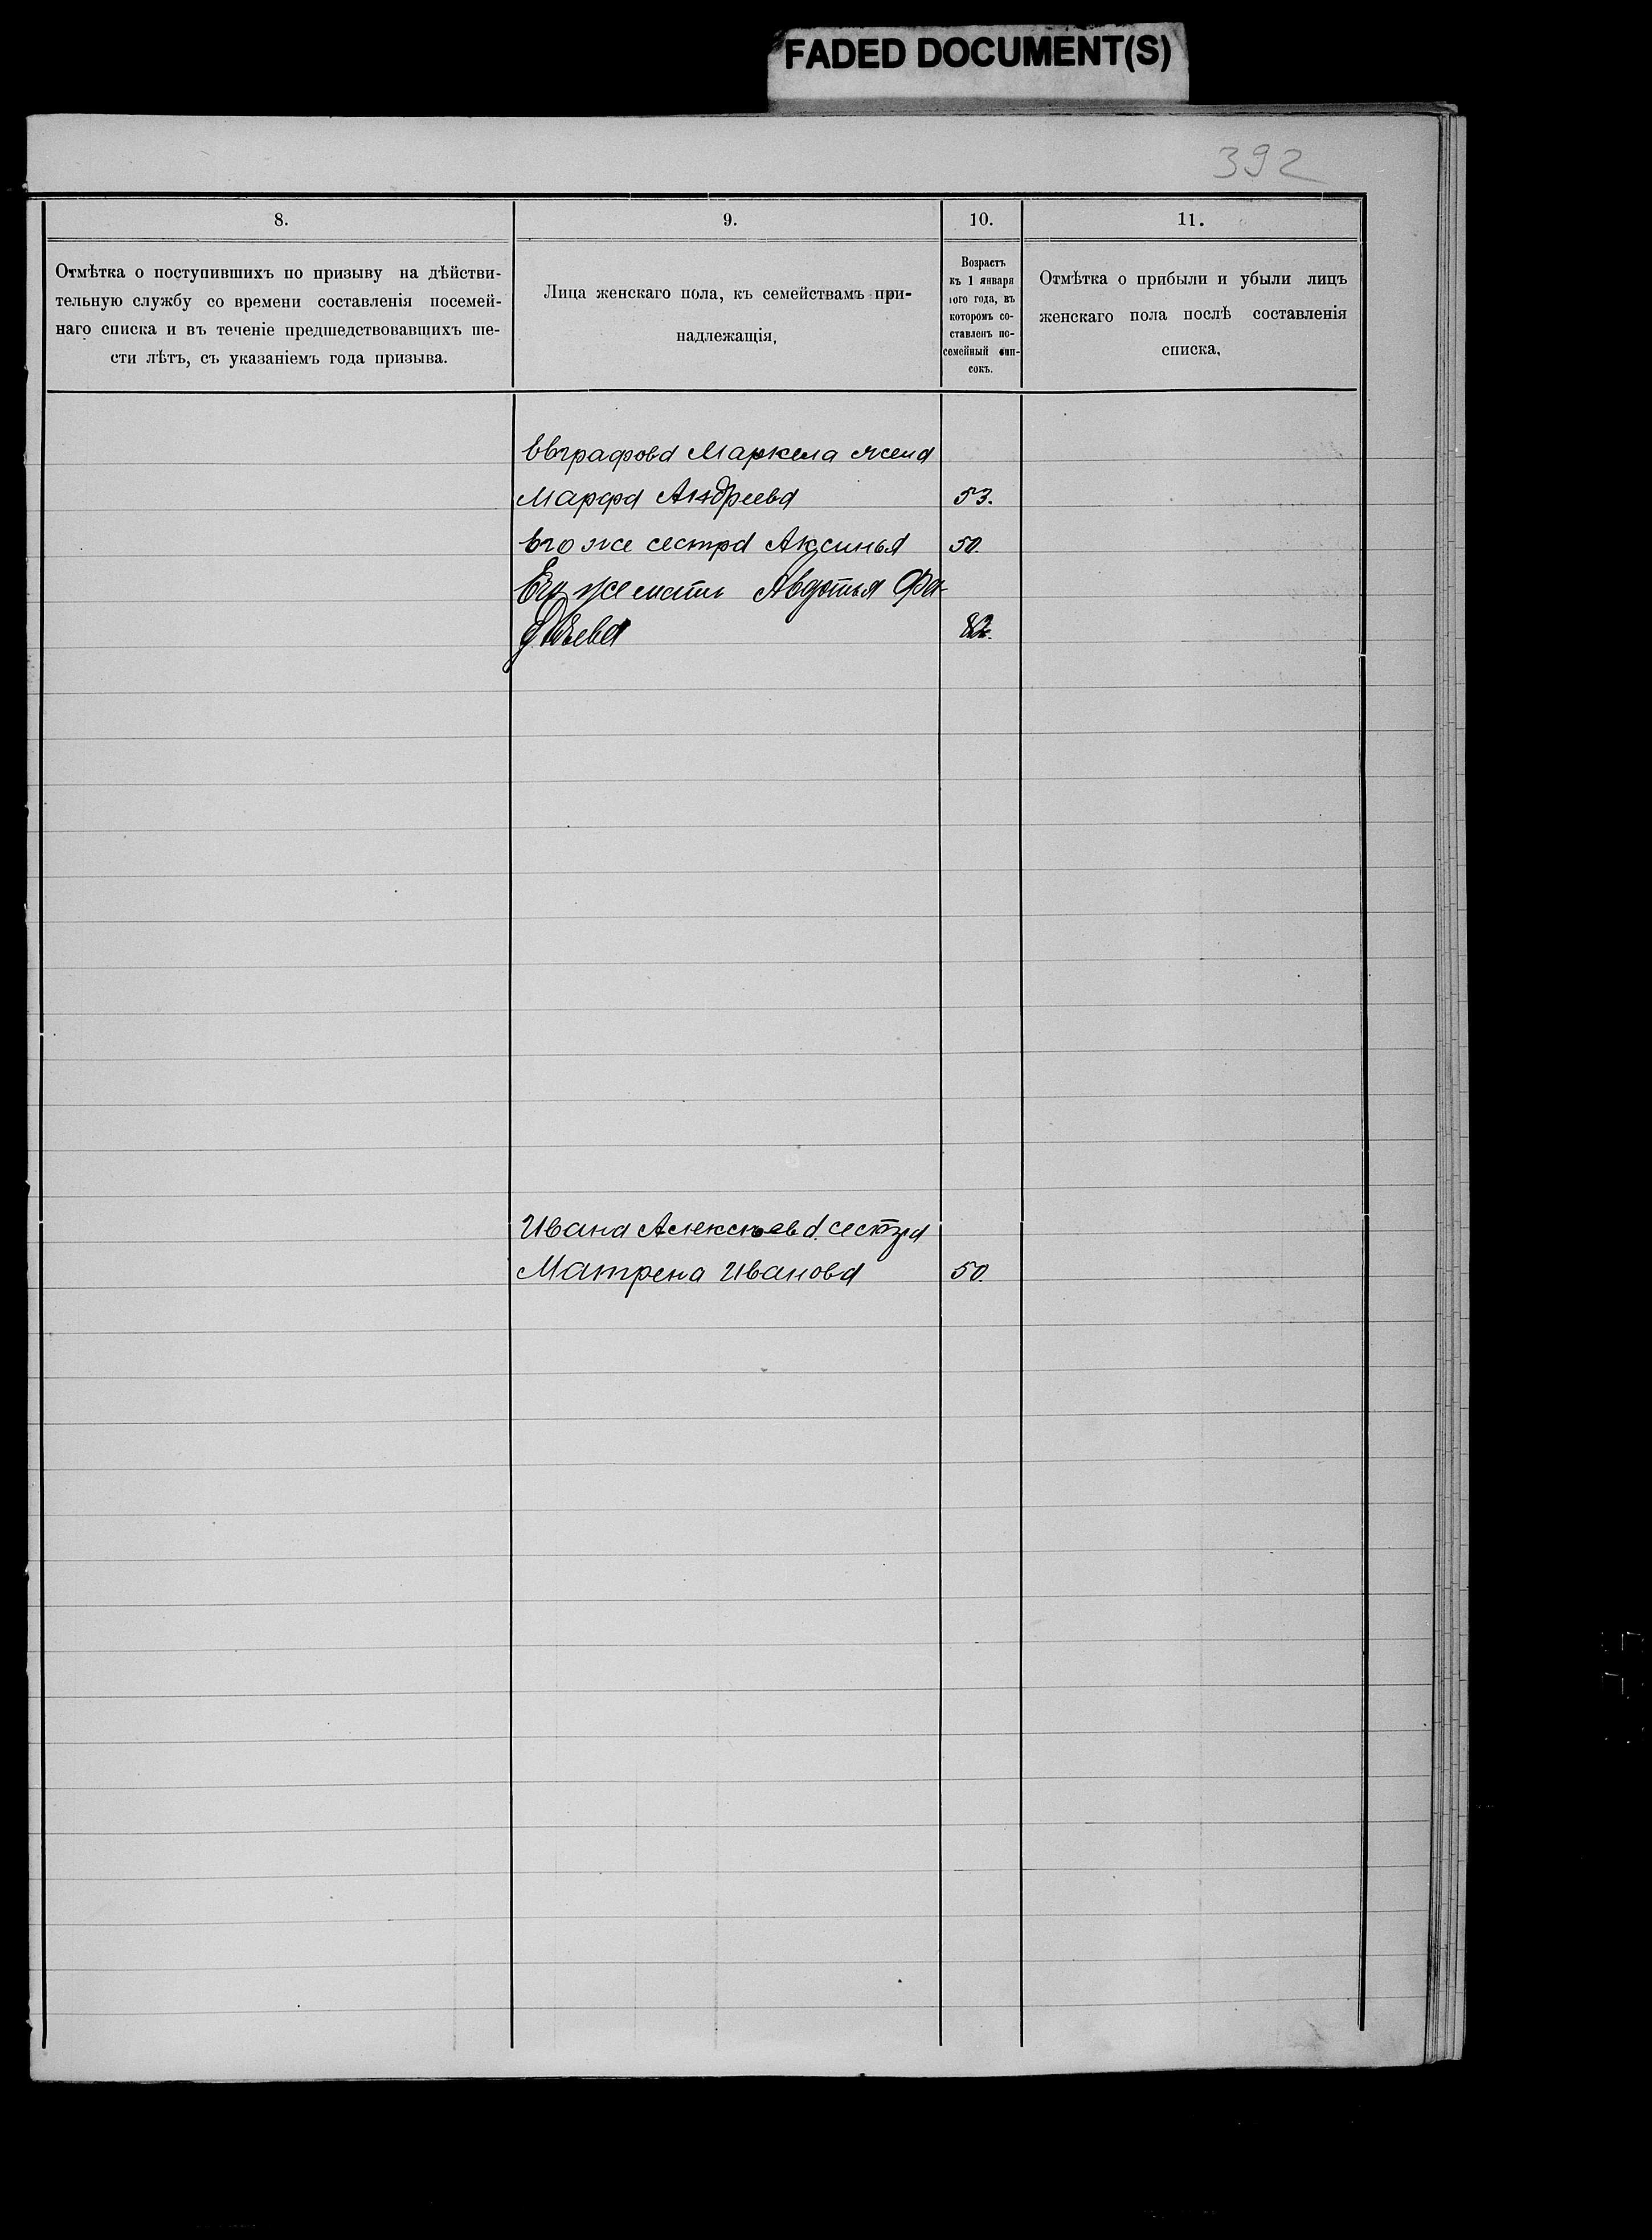 FADED DOCUMENT(S)
392
8.
9.
10.
11.
Отмѣтка о поступившихъ по призыву на дѣйстви-
тельную службу со времени составленія посемей-
наго списка и въ теченіе предшедствовавшихъ ше-
сти лѣтъ, съ указаніемъ года призыва.
Лица женскаго пола, къ семействамъ при-
надлежащія,
Возрастъ
къ 1 января
того года, въ
которомъ со-
ставленъ по-
семейный спи-
сокъ.
Отмѣтка о прибыли и убыли лицъ
женскаго пола послѣ составленія
списка,
Евграфова Маркела жена
Марфа Андреева 53.
Его же сестра Аксинья 50.
Его же мать Авдотья Фа-
дѣева
Ивана Алексѣева сестра
Матрена Иванова 50.